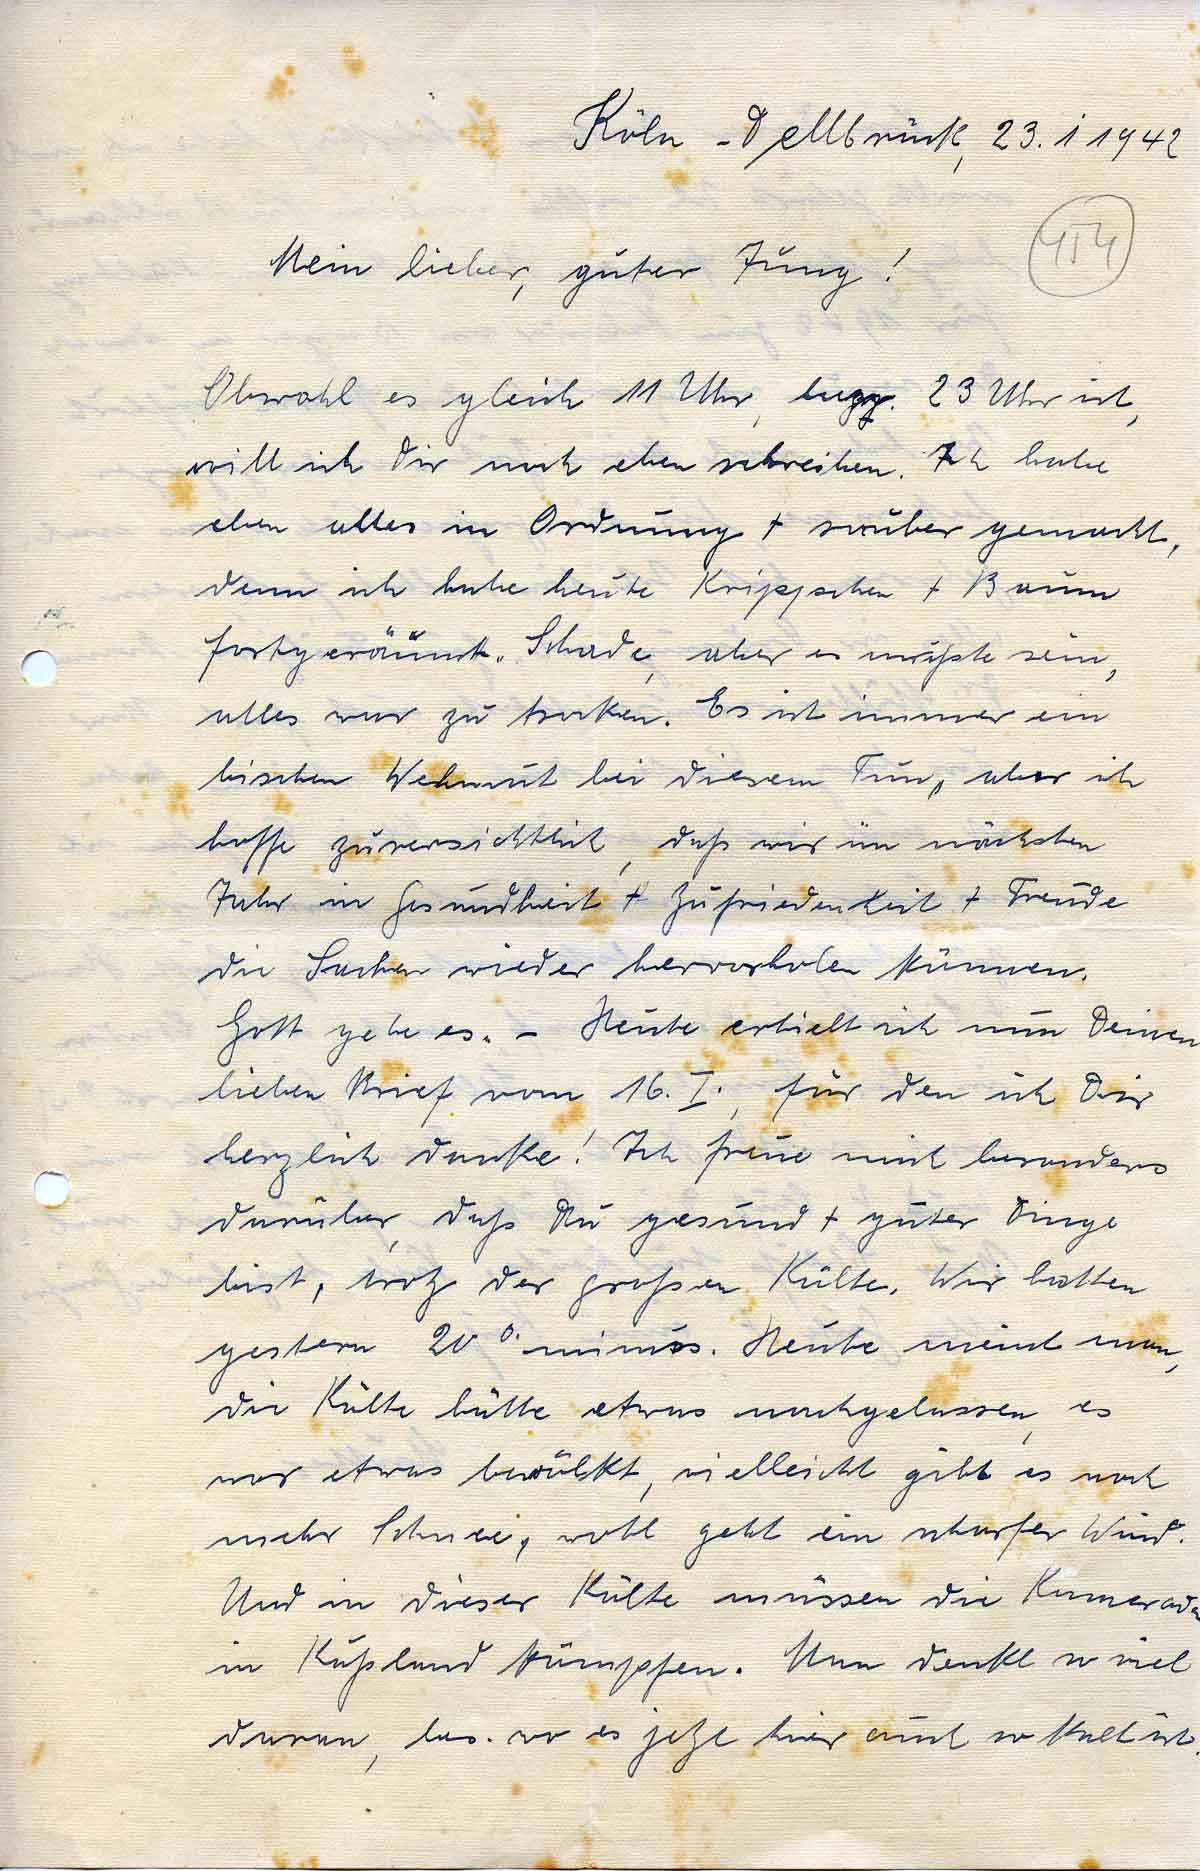 Köln-Dellbrück, 23. I 1942
454
Mein lieber, guter Jung!
Obwohl es gleich 11 Uhr, bezg. 23 Uhr ist,
will ich Dir noch eben schreiben. Ich habe
eben alles in Ordnung + sauber gemacht,
denn ich habe heute Krippchen + Baum
fortgeräumt. Schade, aber es mußte sein,
alles war zu trocken. Es ist immer ein
bischen Wehmut bei diesem Tun, aber ich
hoffe zuversichtlich, daß wir im nächsten
Jahr in Gesundheit + Zufriedenheit + Freude
die Sachen wieder hervorholen können.
Gott gebe es. – Heute erhielt ich nun Deinen
lieben Brief vom 16. I., für den ich Dir
herzlich danke! Ich freue mich besonders
darüber, daß Du gesund + guter Dinge
bist, trotz der großen Kälte. Wir hatten
gestern 20° minus. Heute meint man,
die Kälte hätte etwas nachgelassen, es
war etwas bewölkt, vielleicht gibt es noch
mehr Schnee, wohl geht ein scharfer Wind.
Und in dieser Kälte müssen die Kameraden
in Rußland kämpfen. Man denkt so viel
daran, bes. wo es jetzt hier auch so kalt ist.